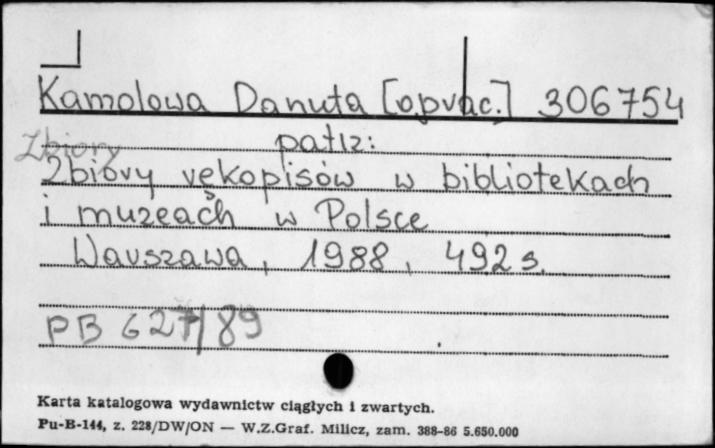 Kamolowa Danuta [oprac.] 306754
patrz:
Zbiory
Zbiory rękopisów w bibliotekach
i muzeach w Polsce
Warszawa, 1988, 492 s.
PB 627/89
Karta katalogowa wydawnictw ciągłych i zwartych.
Pu-B-144, z. 228/DW/ON — W.Z.Graf. Milicz, zam. 388-86 5.650.000